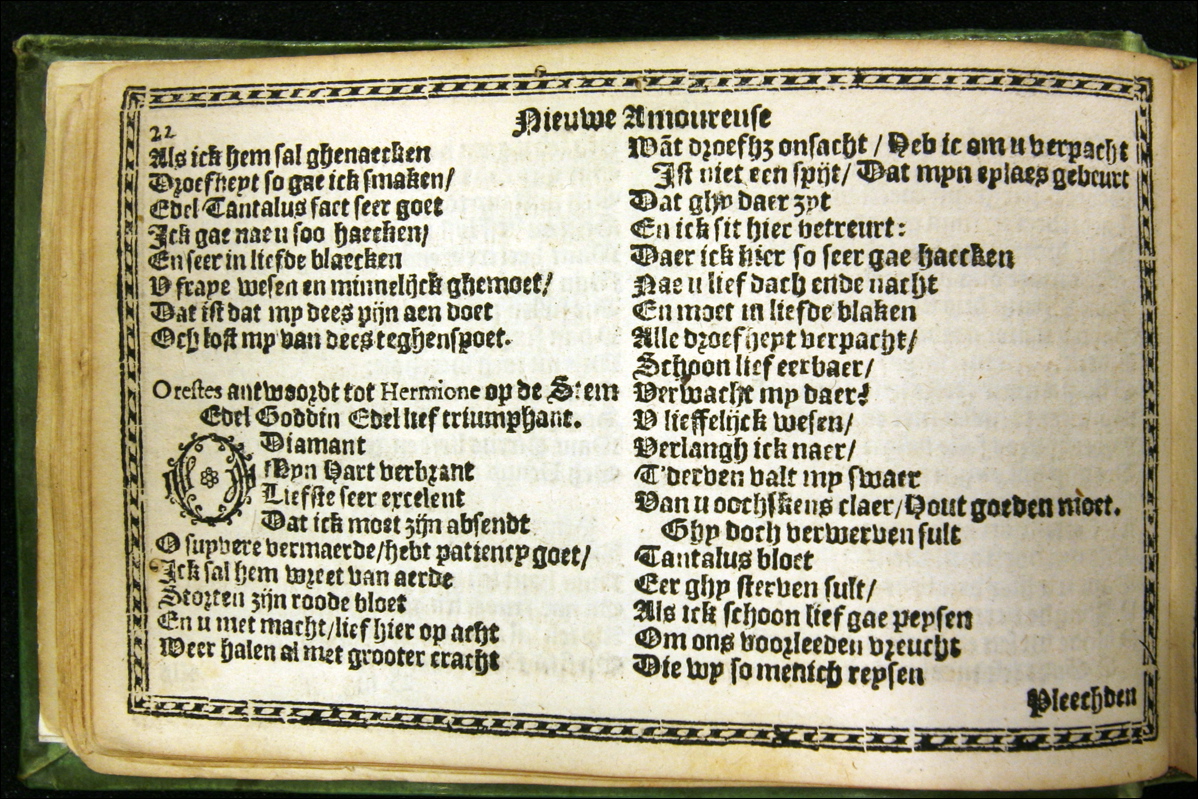 Nieuwe Amoureuse
22
Als ick hem sal ghenaecken
Droefheyt so gae ick smaken/
Edel Tantalus fact seer goet
Ick gae nae u soo haecken/
En seer in liefde blaecken
V fraye wesen en minnelijck ghemoet/
Dat ist dat my dees pijn aen doet
Och lost my van dees teghenspoet.
Orestes antwoordt tot Hermione op de Stem
Edel Goddin Edel lief triumphant.
O Diamant
Myn Hart verbrant
Liefste seer excelent
Dat ick moet zijn absendt
O supvere vermaerde/hebt patiency goet/
Ick sal hem wreet van aerde
Storten zijn roode bloet
En u met macht/lief hier op acht
Weer halen al met grooter cracht
Wãt droefhz onsacht / Heb ic om u verpacht
Ist niet een spijt/ Dat myn eylaes gebeurt
Dat ghy daer zyt
En ick sit hier vetreurt:
Daer ick hier so seer gae haecken
Nae u lief dach ende nacht
En moet in liefde blaken
Alle droefheyt verpacht/
Schoon lief eerbaer/
Verwacht my daer!
V lieffelijck wesen/
Verlangh ick naer/
T'derven valt my swaer
Van u oochskens claer/Hout goeden moet.
Ghy doch verwerven sult
Tantalus bloet
Eer ghy sterven sult/
Als ick schoon lief gae peysen
Om ons voorleeden vreucht
Die wy so menich reysen
Pleechden